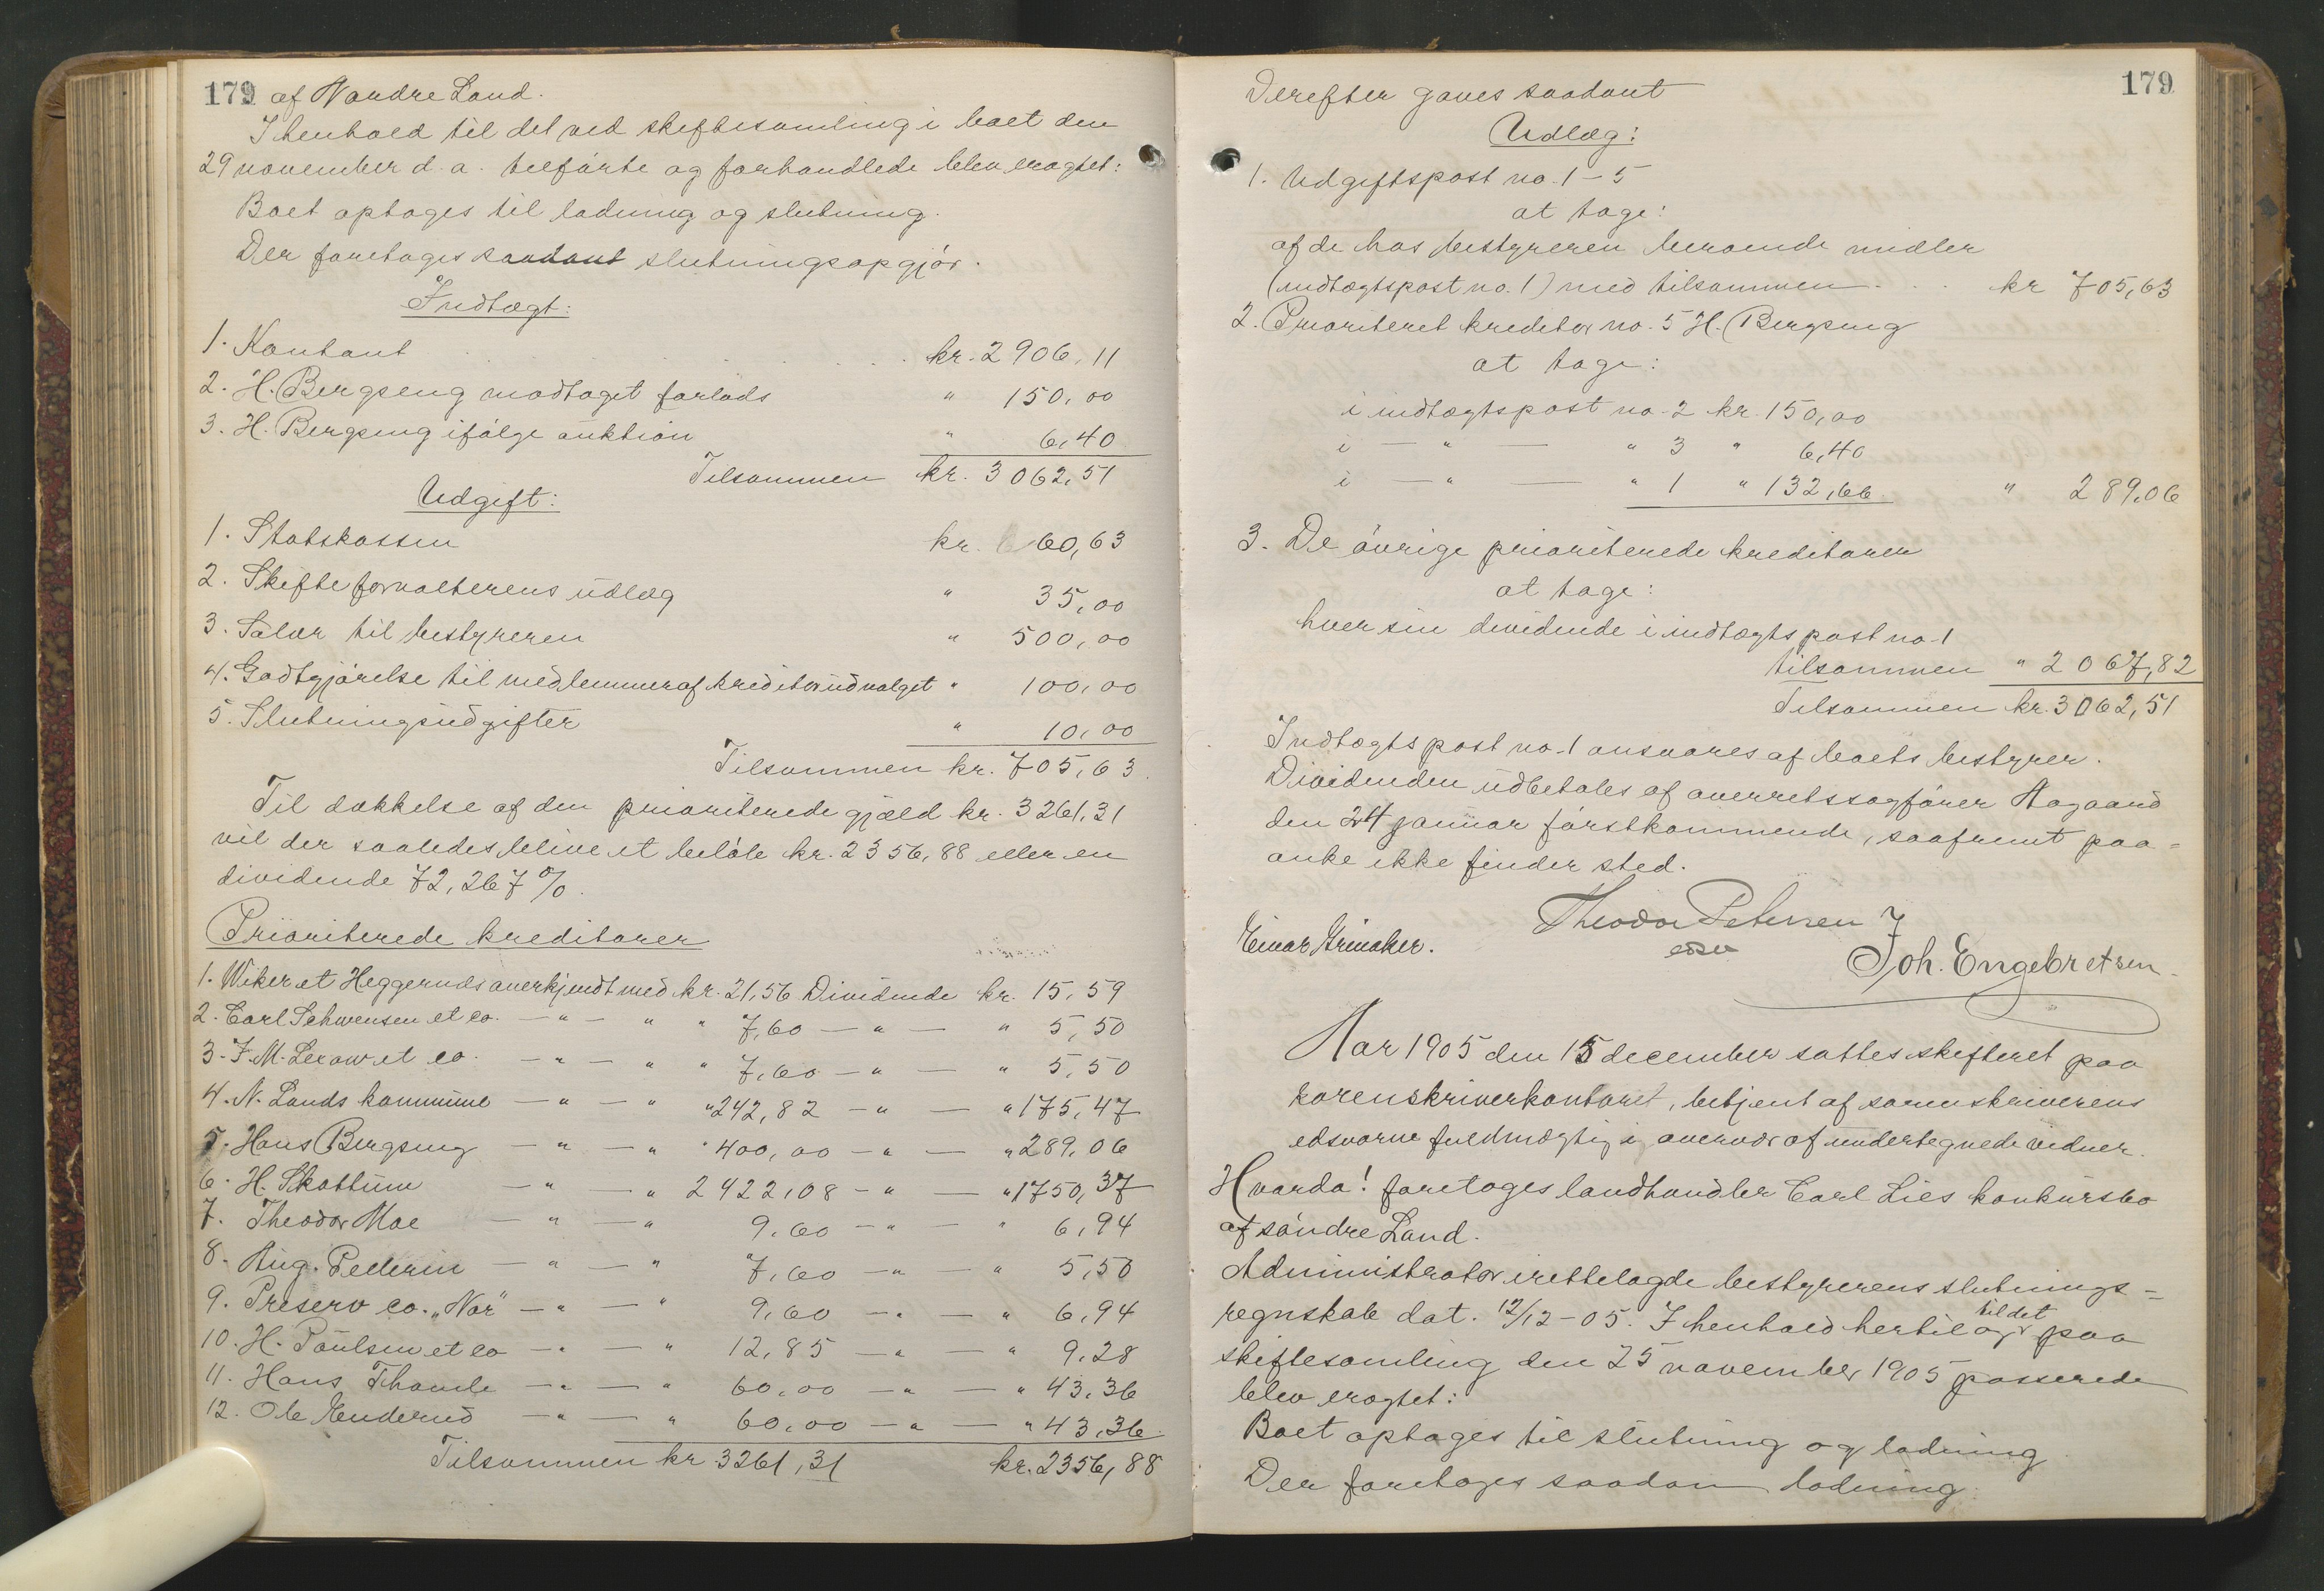 179 af Nordre Land.
I henhold til det ved skiftesamling i boet den
29 november d. a. tilførte og forhandlede blev eragtet:
Boet optages til lodning og slutning.
Der foretages saadant slutningsopgjør.
Indtægt:
1. Kontant . . . . kr. 2906,11
2. H. Bergseng modtaget forlods " 150,00
3. H. Bergseng ifølge auktion " 6,40
Tilsammen kr. 3062,51
Udgift:
1. Statskassen kr. 60,63
2. Skifteforvalterens udlæg " 35,00
3. Salær til bestyreren " 500,00
4. Godtgjørelse til medlemmer af kreditorudvalget " 100,00
5. Slutningsudgifter " 10,00
Tilsammen kr. 705,63.
Til dækkelse af den prioriterede gjæld kr. 3261,31
vil der saaledes blive et beløb kr. 2356,88 eller en
dividende 72,267 %.
Prioriterede kreditorer
1. Wiker et Heggeruds anerkjendt med kr. 21,56 Dividende kr. 15,59
2. Carl Schwensen et co. — " — " " 7,60 — " — " 5,50
3. F. M. Lexow et co. — " — " " 7,60 — " — " 5,50
4. N. Lands kommune — " — " " 242,82 — " — " 175,47
5. Hans Bergseng — " — " " 400,00 — " — " 289,06
6. H. Skattum — " — " 2422,08 — " — " 1750,37
7. Theodor Moe — " — " 9,60 — " — " 6,94
8. Aug. Pellerin — " — " 7,60 — " — " 5,50
9. Preserv co. „Nor" — " — " 9,60 — " — " 6,94
10. H. Poulsen et co — " — " 12,85 — " — " 9,28
11. Hans — " — " 60,00 — " — " 43,36
12. Ole Enderud — " — " 60,00 — " — " 43,36
Tilsammen kr 3261,31 kr. 2356,88
179
Derefter gaves saadant
Udlæg:
1. Udgiftspost no. 1–5
at tage:
af de hos bestyreren beroende midler
(indtægtspost no. 1) med tilsammen . . kr 705,63
2. Prioriteret kreditor no. 5 H. Bergseng
at tage:
i indtægtspost no. 2 kr. 150,00
i — " — " 3 " 6,40
i — " — " 1 " 132,66 " 289,06
3. De øvrige prioriterede kreditorer
at tage:
hver sin dividende i indtægtspost no. 1
tilsammen " 2067,82
Tilsammen kr. 3062,51
Indtægtspost no. 1 ansvares af boets bestyrer.
Dividenden udbetales af overretssagfører Aagaard
den 24 januar førstkommende, saafremt paa-
anke ikke finder sted.
Theodor Petersen
edsv
Einar Grinaker.
Joh. Engebretsen.
Aar 1905 den 15 december sattes skifteret paa
sorenskriverkontoret, betjent af sorenskriverens
edsvorne fuldmægtig i overvær af undertegnede vidner.
Hvorda! foretoges landhandler Carl Lies konkursbo
af søndre Land.
Administrator irettelagde bestyrerens slutnings-
regnskab dat. 12/12-05. I henhold hertil og til det paa
skiftesamling den 25 november 1905 passerede
blev eragtet:
Boet optages til slutning og lodning
Der foretages saadan lodning